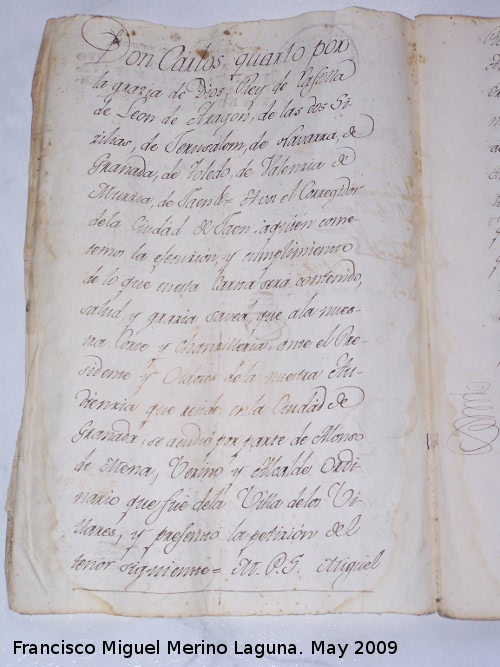 Don Carlos quarto por
la grazia de Dios, Rey de Castilla
de Leon de Aragon, de las dos Si-
zilias, de Jerusalem, de Navarra, de
Granada, de Toledo, de Valenzia de
Murzia, de Jaen &= A vos el Corregidor
de la Ciudad de Jaen, a quien come-
temos la ejecuzion, y cumplimiento
de lo que en esta Carta será contenido,
salud y grazia saved, que a la nues-
tra Corte y Chanzilleria, ante el Pre-
sidente y Oidores de la nuestra Au-
dienzia que reside en la Ciudad de
Granada, se acudió por parte de Alonso
de Mena, Vezino y Alcalde Ordi-
nario que fué de la Villa de los Vi-
llares, y presentó la petizión del
tenor siguiente= M. P. S. Miguel
Francisco Miguel Merino Laguna. May 2009